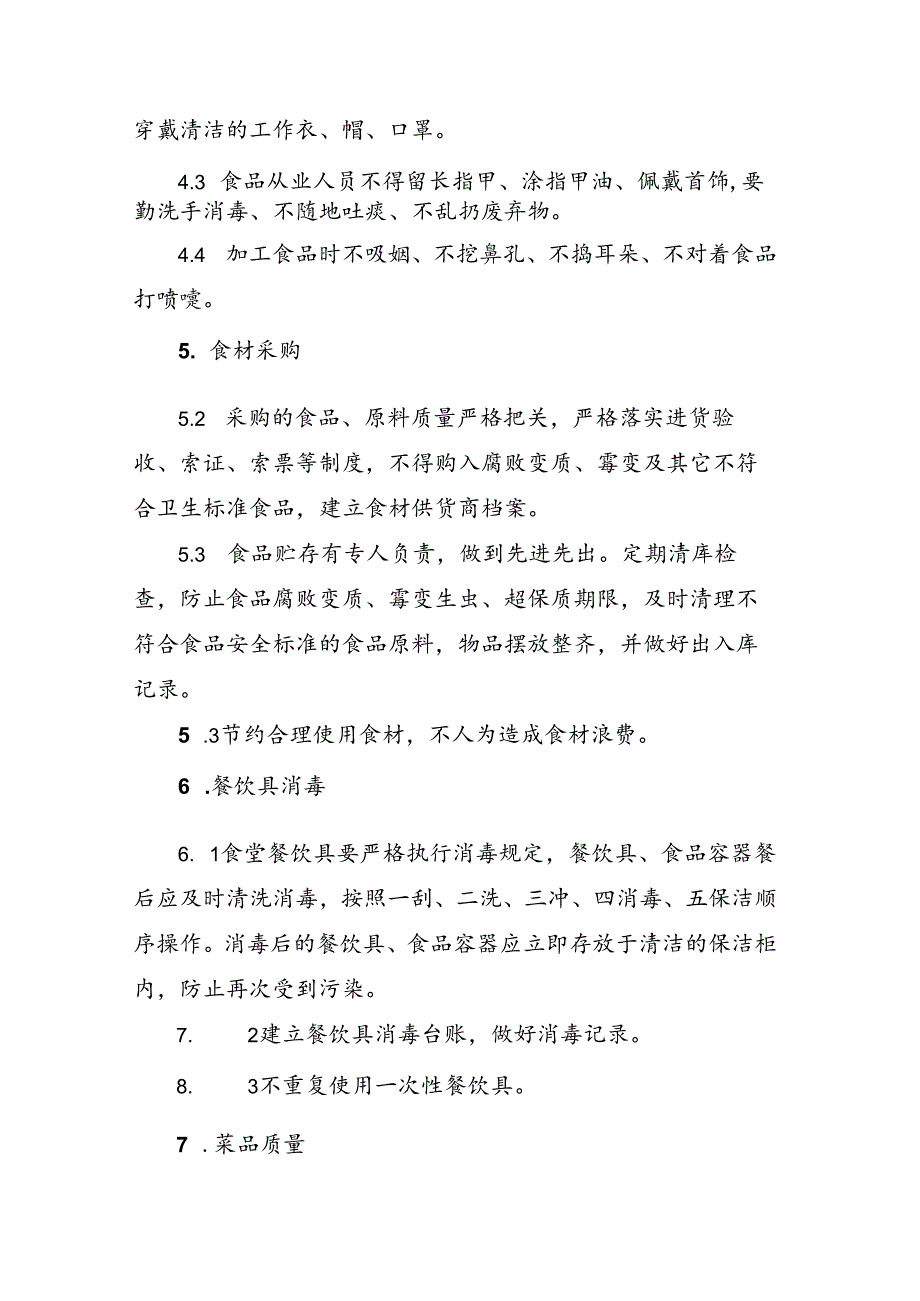 穿戴清洁的工作衣、帽、口罩。
4.3 食品从业人员不得留长指甲、涂指甲油、佩戴首饰,要
勤洗手消毒、不随地吐痰、不乱扔废弃物。
4.4 加工食品时不吸姻、不挖鼻孔、不捣耳朵、不对着食品
打喷嚏。
5. 食材采购
5.2 采购的食品、原料质量严格把关，严格落实进货验
收、索证、索票等制度，不得购入腐败变质、霉变及其它不符
合卫生标准食品，建立食材供货商档案。
5.3 食品贮存有专人负责，做到先进先出。定期清库检
查，防止食品腐败变质、霉变生虫、超保质期限，及时清理不
符合食品安全标准的食品原料，物品摆放整齐，并做好出入库
记录。
5 .3节约合理使用食材，不人为造成食材浪费。
6 .餐饮具消毒
6. 1食堂餐饮具要严格执行消毒规定，餐饮具、食品容器餐
后应及时清洗消毒，按照一刮、二洗、三冲、四消毒、五保洁顺
序操作。消毒后的餐饮具、食品容器应立即存放于清洁的保洁柜
内，防止再次受到污染。
7. 2建立餐饮具消毒台账，做好消毒记录。
8. 3不重复使用一次性餐饮具。
7 .菜品质量